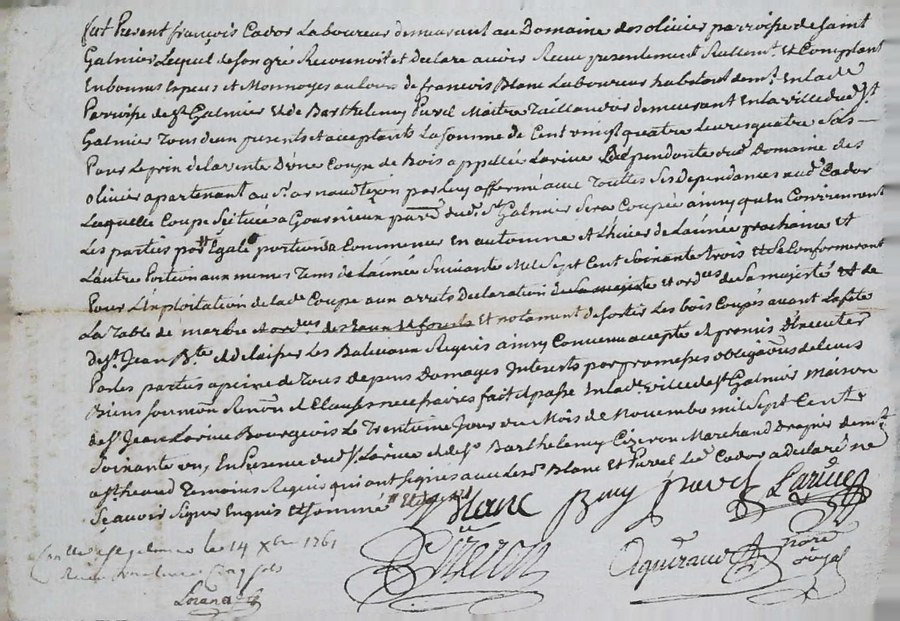 fut Present françois Cador Laboureur demeurant au Domaine des olivier parroisse de Saint
Galmier Lequel de son gré Reconnoit et Declare avoir Receu presentement Reellemt et Comptant
En bonnes Especes et Monnoyes au Cours de francois Blanc Laboureur habitant demt En lade
Parroisse de St Galmier et de Barthelemy Purel Maitre Taillandier demeurant En la ville dud St
Galmier Tous deux presents et acceptants La somme de Cent vingt quatre Livres quatre sols
Pour Le prix de la vente D'une Coupe de Bois appellée Larive Dépendante dud Domaine des
olivier apartenant au Sr arnaud par Luy affermé avec Toutes Ses Dependances aud Cador
Laquelle Coupe Scituée a parre dud St Galmier Sera Coupée ainsy qu'en Conviennent
Les parties par Egale portion a Commencer En automne et L'hiver de L'année prochaine et
L'autre Portion aux memes Tems de L'année Suivante Mil Sept Cent Soixante trois et Se Conformeront
Pour L'Exploitation de lade Coupe aux arrets Declaration et ordces de Sa majesté et de
La Table de marbre Et notament de sortir Les bois Coupés avant La fete
de St Jean Bte et de Laisser Les Baliveaux Requis ainsy Convenu accepté et promis d'Executer
Par les parties a peine de Tous depens Domages Interets par promesses obligaons de leurs
Biens soumon Renon et Clauses necessaires fait et passé En lade ville de St Galmier Maison
de Sr Jean Larive Bourgeois Le Trentieme Jour du Mois de Novembre mil Sept Cent
Soixante un, En Presence dud Sr Larive et de Sr Barthelemy Cizeron Marchand Drapier demt
a St heand Temoins Requis qui ont signés avec Lesd Blanc et Purel Led Cador a Declaré ne
Sçavoir Signer Enquis et Sommé
Blanc Purel Larive
Cizeron
notre royal
le 14 Xbre 1761
sols